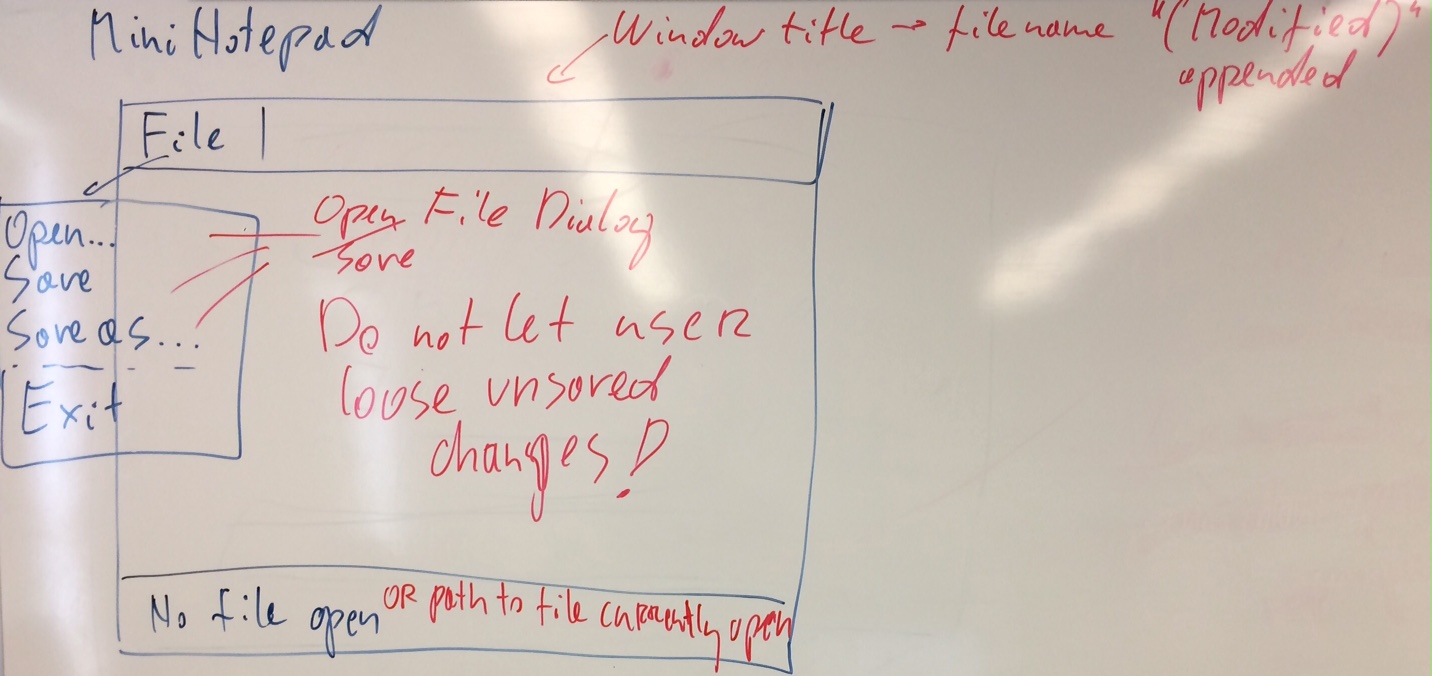 Mini Notepad
Window title → filename "(Modified)"
appended
File |
Open...
Save
Save as...
Exit
Open File Dialog
Save
Do not let user
loose unsaved
changes!
No file open OR path to file currently open